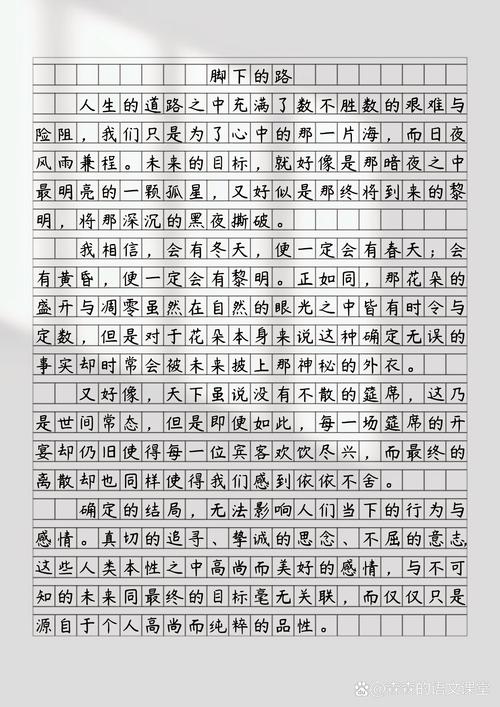 脚下的路
人生的道路之中充满了数不胜数的艰难与
险阻，我们只是为了心中的那一片海，而日夜
风雨兼程。未来的目标，就好像是那暗夜之中
最明亮的一颗孤星，又好似是那终将到来的黎
明，将那深沉的黑夜撕破。
我相信，会有冬天，便一定会有春天；会
有黄昏，便一定会有黎明。正如同，那花朵的
盛开与凋零虽然在自然的眼光之中皆有时令与
定数，但是对于花朵本身来说这种确定无误的
事实却时常会被未来披上那神秘的外衣。
又好像，天下虽说没有不散的筵席，这乃
是世间常态，但是即便如此，每一场筵席的开
宴却仍旧使得每一位宾客欢饮尽兴，而最终的
离散却也同样使得我们感到依依不舍。
确定的结局，无法影响人们当下的行为与
感情。真切的追寻、挚诚的思念、不屈的意志，
这些人类本性之中高尚而美好的感情，与不可
知的未来同最终的目标毫无关联，而仅仅只是
源自于个人高尚而纯粹的品性。
森森的语文课堂